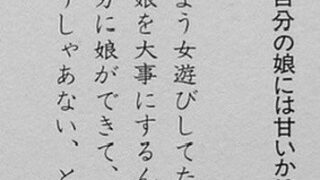 自分の娘には甘いか
よう女遊びしてた
娘を大事にするん
分に娘ができて、
うしゃあない、と